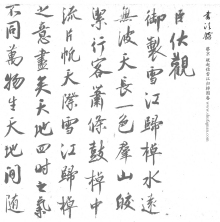 臣伏觀
御製雪江歸棹水遠
無波天長一色群山皎
潔行客蕭條鼓棹中
流片帆天際雪江歸棹
之意盡矣天地四時之氣
不同萬物生天地間隨